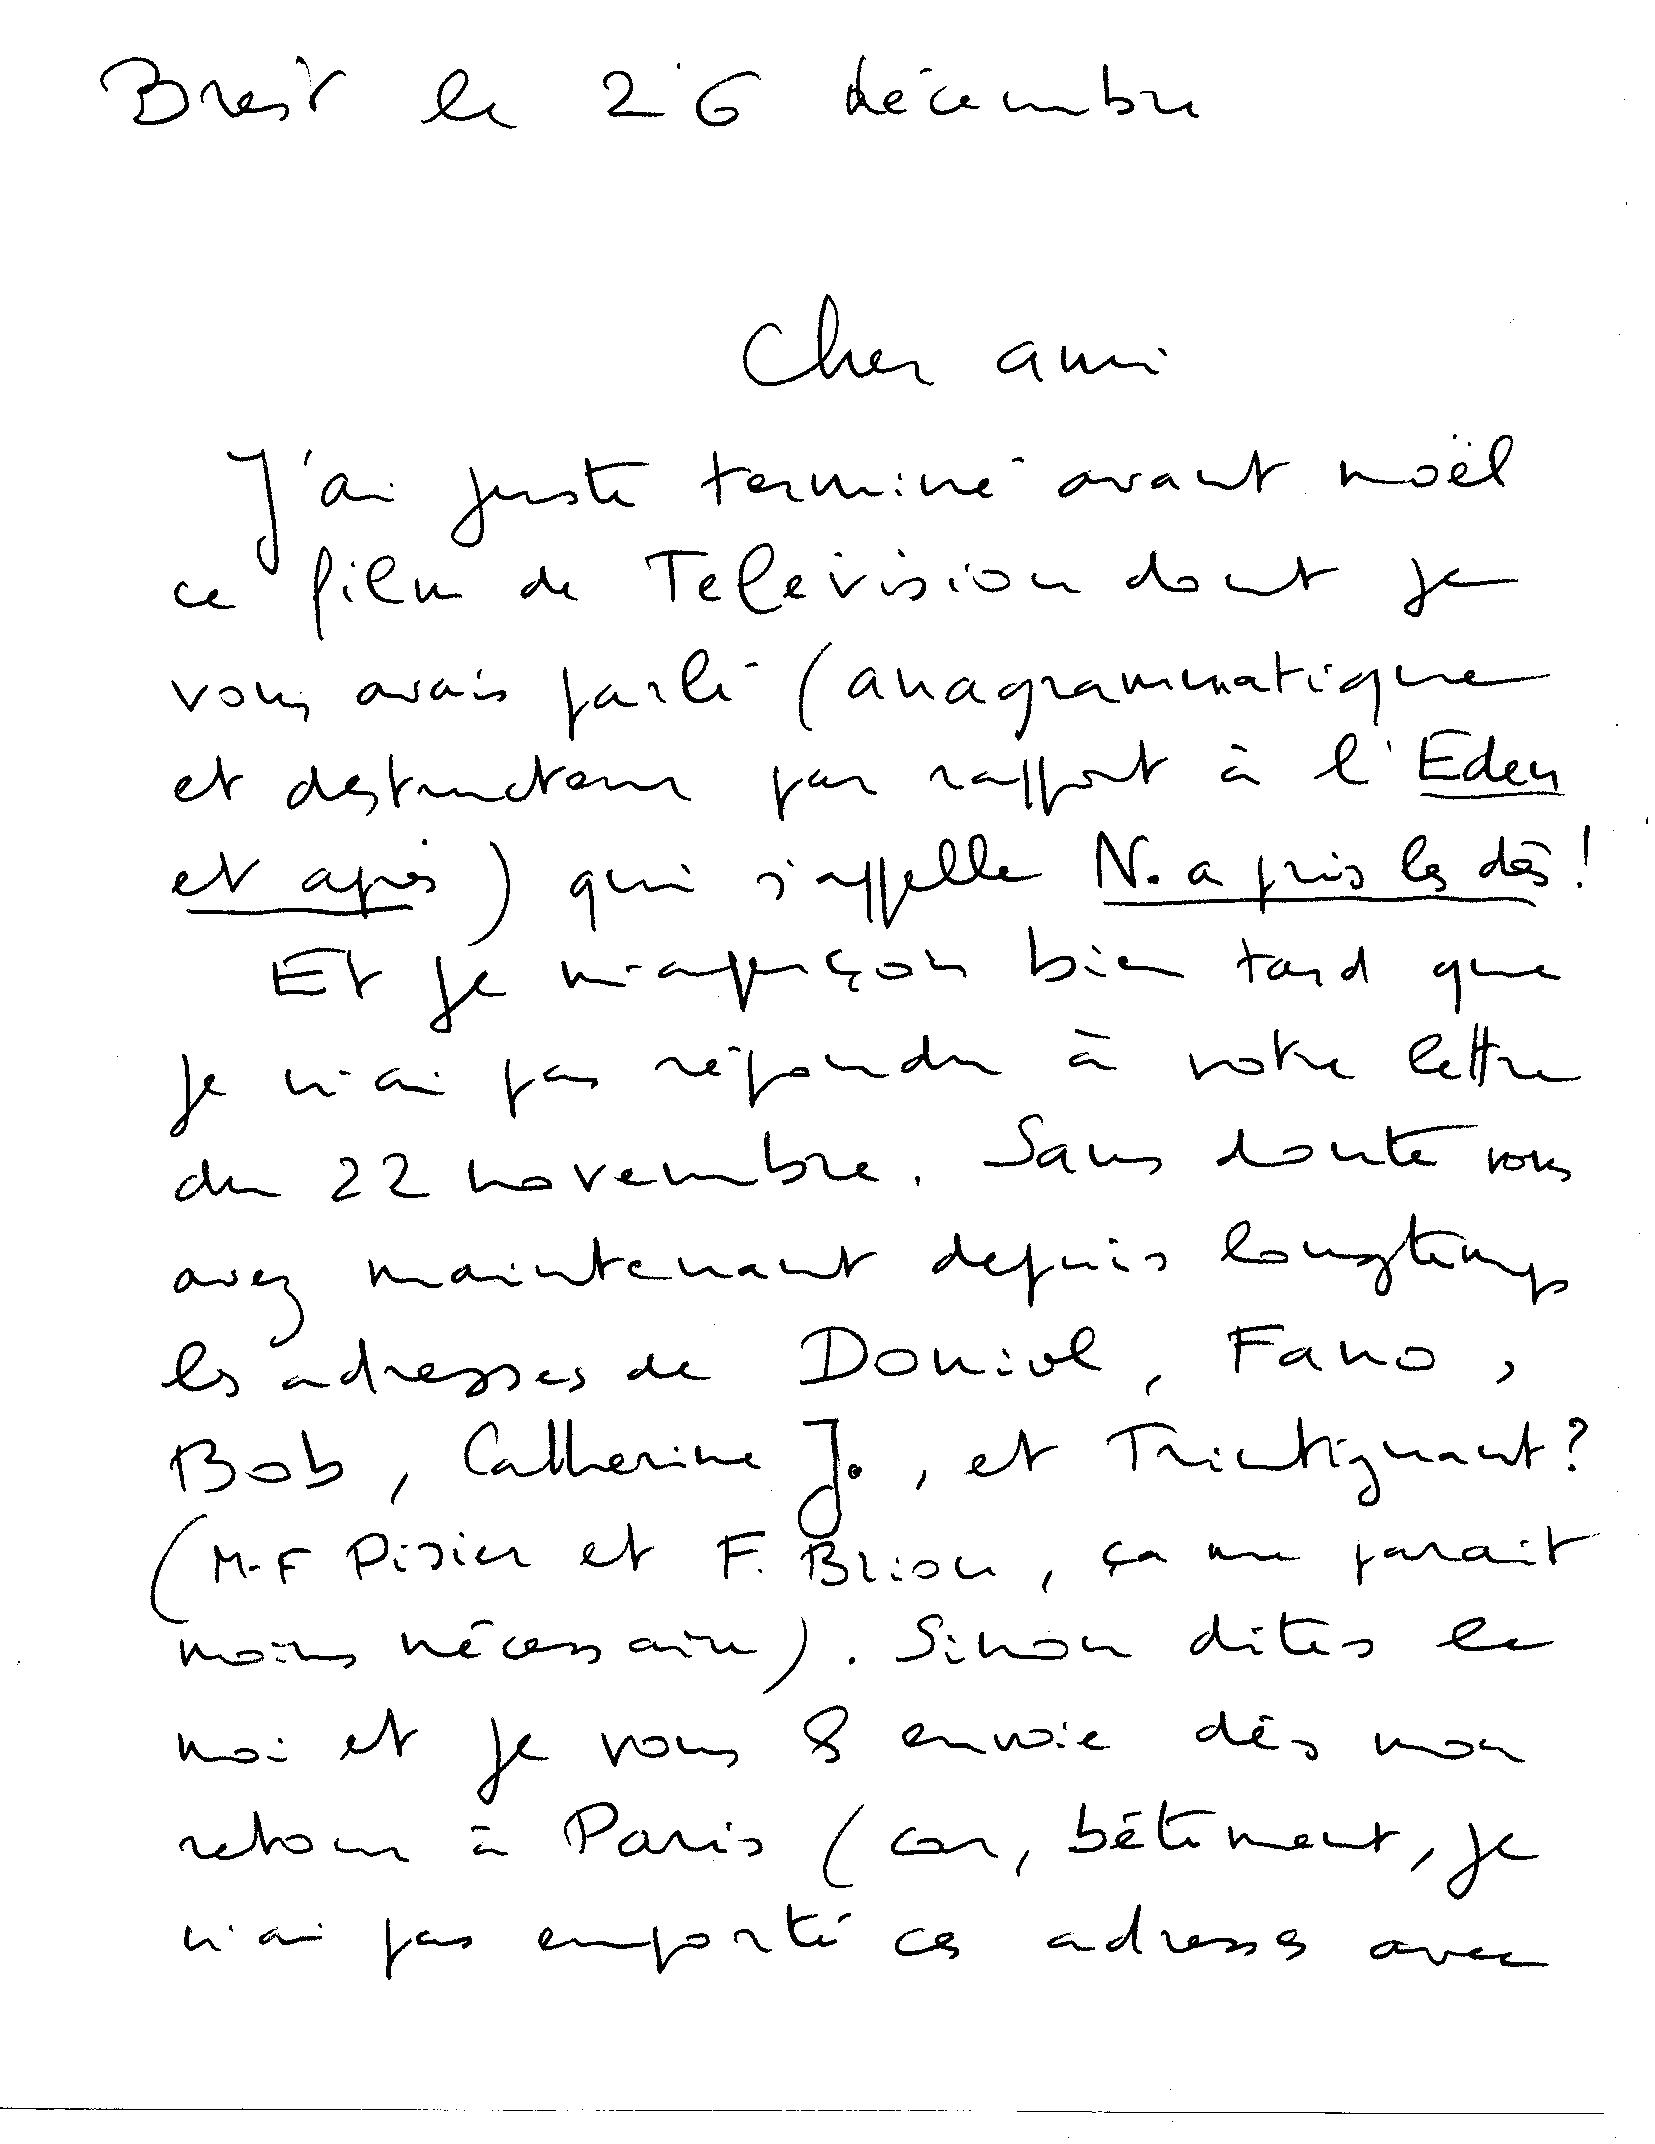 Brest le 26 décembre
Cher ami
J'ai juste terminé avant noël
ce film de Télévision dont je
vous avais parlé (anagrammatique
et destructeur par rapport à l'Eden
et après) qui s'appelle N. a pris les dés!
Et je m'aperçois bien tard que
je n'ai pas répondu à votre lettre
du 22 novembre. Sans doute vous
avez maintenant depuis longtemps
les adresses de Doniol, Fano,
Bob, Catherine J., et Trintignant?
(M-F Pisier et F. Brion, ça me parait
moins nécessaire). Sinon dites le
moi et je vous envoie dès mon
retour à Paris (car, bêtement, je
n'ai pas emporté ces adresses avec